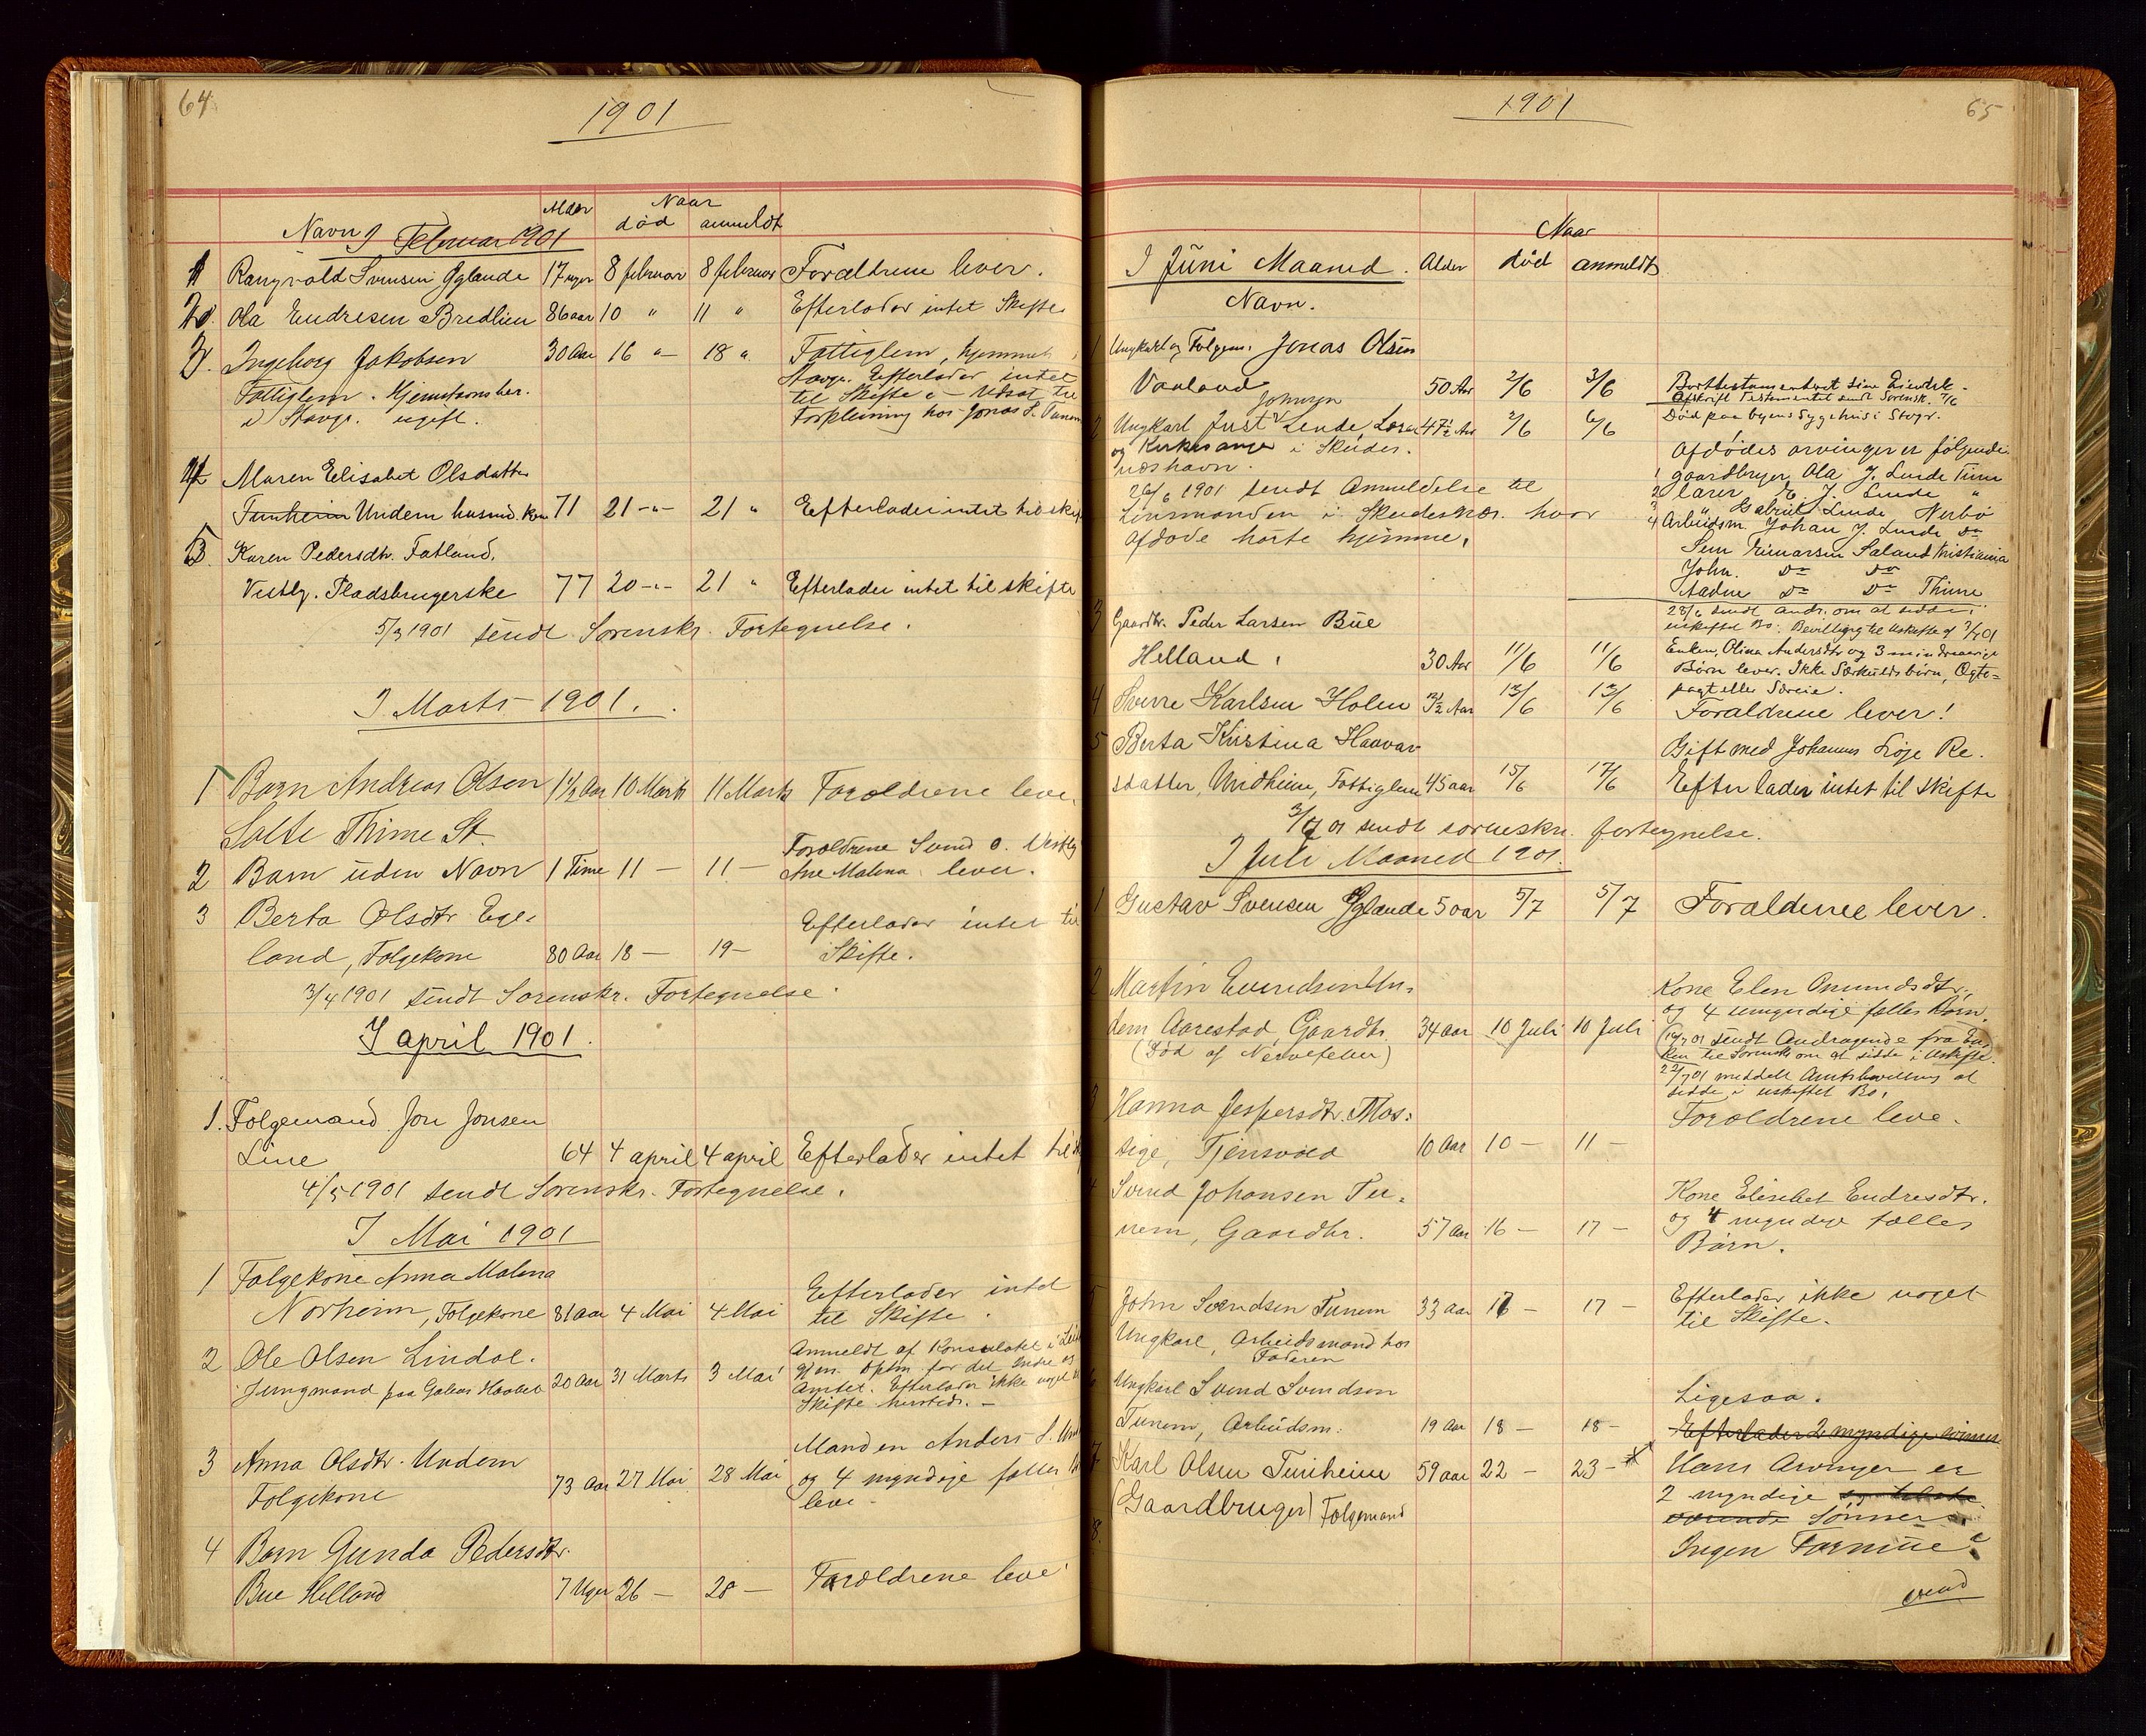 64
1901
Navn I Februar 1901 Alder Naar død anmeldt
1 Rangvald Svensen Øglænde 17 uger 8 februar 8 februar Forældrene lever.
2 Ola Endresen Bredlien 86 aar 10 " 11 " Efterlader intet Skifte
3 Ingeborg Jakobsen 30 Aar 16 -"- 18 " Fattiglem, hjemmeh
Fattiglem. Hjemstavnsber. Stavgr. Efterlader intet
i Stavgr. ugift. til Skifte. Udsat til
Forpleining hos Jonas S. Tunem
4 Maren Elisabet Olsdatter
Tunheim Undem husmd. kone 71 21 -"- 21 " Efterlader intet til skif
5 Karen Pedersdtr. Fatland,
Vestly. Pladsbrugerske 77 20 -"- 21 " Efterlader intet til skifte
5/3 1901 sendt Sorenskr. Fortegnelse.
I Marts 1901.
1 Barn Andreas Olsen 1 1/2 Aar 10 Marts 11 Marts Forældrene leve.
Salte Thime St.
2 Barn uden Navn 1 Time 11 — 11 — Forældrene Svend O. Vestly
Ane Malena lever.
3 Berta Olsdtr Ege-
land, Følgekone 80 Aar 18 — 19 — Efterlader intet til
Skifte.
3/4 1901 sendt Sorenskr. Fortegnelse.
I april 1901.
1. Følgemand Jon Jonsen
Line 64 4 april 4 april Efterlader intet til
4/5 1901 sendt Sorenskr. Fortegnelse.
I Mai 1901
1 Følgekone Anna Malena
Norheim, Følgekone 81 aar 4 Mai 4 Mai Efterlader intet
til Skifte.
2 Ole Olsen Lindal. Anmeldt af Konsulatet i
Jungmand paa Galeas Haabet 20 Aar 31 Marts 3 Mai gjen. Dptm for det Indre og
Amtet. Efterlader ikke noget
Skifte hersteds. —
3 Anna Olsdtr. Undem Manden Anders S.
Følgekone 73 Aar 27 Mai 28 Mai og 4 myndige fælles
leve.
4 Barn Gunda Pedersdtr.
Bue Helland 7 Uger 26 — 28 — Forældrene leve
65
1901
I Juni Maaned. Alder Naar død anmeldt
Navn.
1 Ungkarl og Følgem. Jonas Olsen
Vaaland 50 Aar 2/6 3/6 Borttestamenteret sine Eiendele.
Afskrift Testamentet sendt Sorensk. 7/6
2 Ungkarl Just Johnsen Lende, Lærer 47 1/2 Aar 2/6 6/6 Død paa byens Sygehus i Stvgr.
og Kirkesanger i Skudes-
næshavn. Afdødes arvinger er følgende
26/6 1901 sendt Anmeldelse til 1 gaardbruger Ola J. Lende Time
Lensmanden i Skudesnæs. hvor 2 lærer E. J. Lende "
afdøde hørte hjemme. 3 " Gabriel Lende Nærbø
4 Arbeidsm. Johan J. Lende do
Sem Einarsen Saland Kristiania
John. do do
Aadne do do Thime
3 Gaardbr. Peder Larsen Bue 28/6 sendt Andr. om at sidde i
uskiftet Bo. Bevilling til Uskifte af 3/7 01
Helland, 30 Aar 11/6 11/6 Enken, Olina Andersdtr og 3 mindreaarige
Børn lever. Ikke Særkuldsbørn, Ægte=
pagt eller Særeie.
4 Sverre Karlsen Holen 2 1/2 Aar 13/6 13/6 Forældrene lever!
5 Berta Kristina Haavar Gift med Johannes Reje Re.
sdatter, Undheim, Fattiglem 45 aar 15/6 17/6 Efterlader intet til skifte
3/7 01 sendt sorenskr. fortegnelse.
I Juli Maaned 1901.
1 Gustav Svensen Øglænde 5 aar 5/7 5/7 Forældrene lever.
2 Martin Evendsen Un- Kone Elen Omundsdtr.
dem Aarestad, Gaardbr. 34 aar 10 Juli 10 Juli og 4 umyndige fælles Børn.
(Død af Nervefeber) 19/7 01 sendt Andragende fra En-
ken til Sorenskr om at sidde i Uskifte.
22/7 01 meddelt Amtsbevilling at
sidde i uskiftet Bo.
3 Hanna Jespersdtr. Mos= Forældrene leve.
sige, Tjensvold 10 Aar 10 — 11 —
4 Svend Johansen Tu= Kone Elisebet Endresdtr.
nem, Gaardbr. 57 Aar 16 — 17 — og 4 myndige fælles
Børn.
5 John Svendsen Tunem 33 aar 17 — 17 — Efterlader ikke noget
til Skifte.
Ungkarl, Arbeidsmand hos
Faderen
6 Ungkarl Svend Svendsen Ligesaa.
Tunem, Arbeidsm. 19 Aar 18 — 18 — Efterlader 2 myndige sønner
7 Karl Olsen Tunheim 59 aar 22 — 23 — x Hans Arvinger er
(Gaardbruger) Følgemand 2 myndige
Sønner.
8. Ingen Formue.
vend